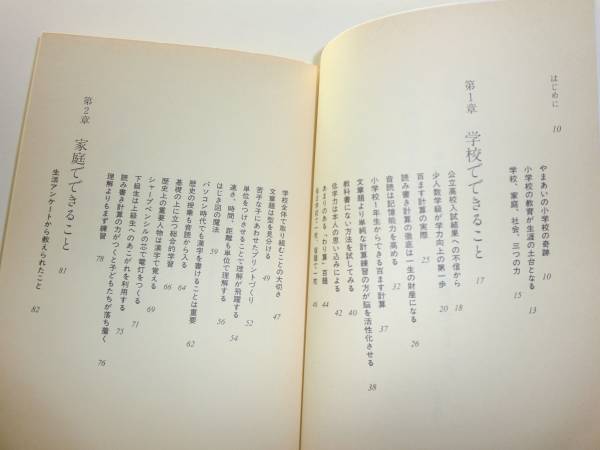 はじめに 10
やまあいの小学校の奇跡 10
小学校の教育が生涯の土台となる 13
学校、家庭、社会、三つの力 15
第1章 学校でできること 17
公立高校入試結果への不信から 18
少人数学級が学力向上の第一歩 20
百ます計算の実際 25
読み書き計算の徹底は一生の財産になる 26
音読は記憶能力を高める 32
小学校1年生からできる百ます計算 37
文章題より単純な計算練習の方が脳を活性化させる 38
教科書にない方法を試してみる 40
低学力は本人の思い込みによる 42
あまりのある「わり算」百題 44
46
学校全体で取り組むことの大切さ 47
文章題は型を見分ける 49
苦手な子にあわせたプリントづくり 52
単位をつけさせることで理解が飛躍する 54
速さ、時間、距離も単位で理解する 56
はじき回の魔法 59
パソコン時代でも漢字を書けることは重要 62
歴史の授業も音読から入る 64
基礎の上に立つ総合的学習 66
歴史上の重要人物は漢字で覚える 69
シャープペンシルの芯で電灯をつくる 71
下級生は上級生へのあこがれを利用する 75
読み書き計算の力がつくと子どもたちが落ち着く 76
理解よりもまず練習 78
第2章 家庭でできること 81
生活アンケートから教えられたこと 82